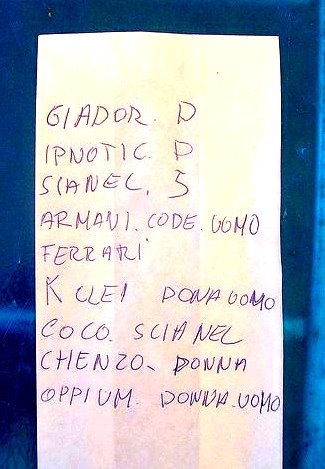 GIADOR. D
IPNOTIC. D
SCIANEL. 5
ARMANI. CODE. UOMO
FERRARI
K CLEI DONA UOMO
COCO. SCIANEL
CHENZO. DONNA
OPPIUM. DONNA. UOMO